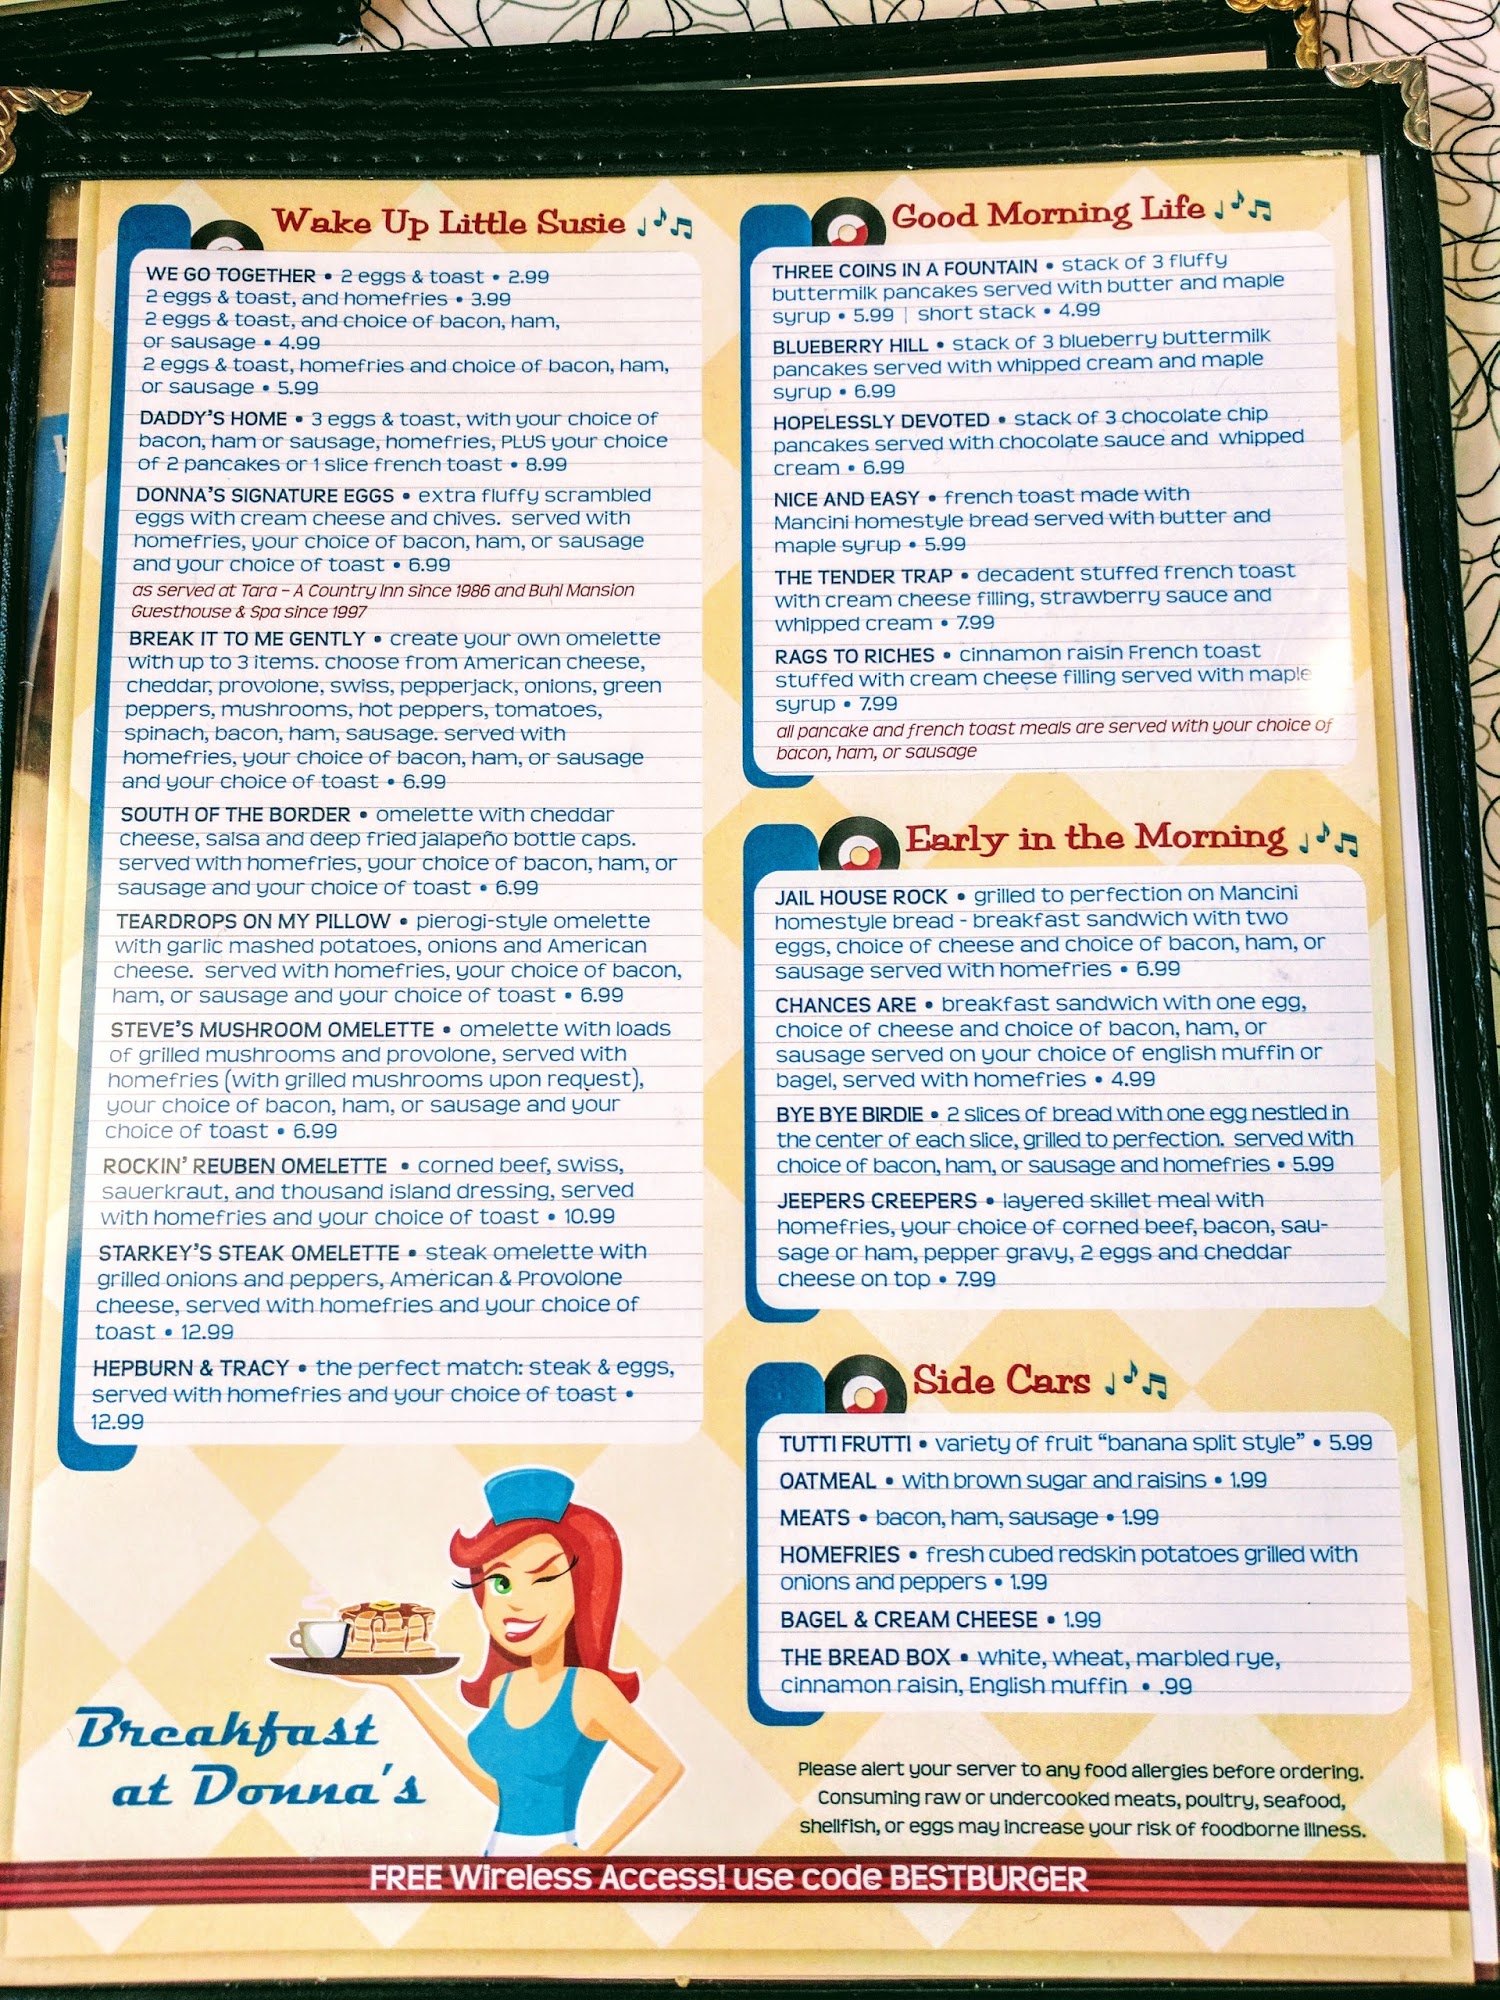 Wake Up Little Susie
WE GO TOGETHER • 2 eggs & toast • 2.99
2 eggs & toast, and homefries • 3.99
2 eggs & toast, and choice of bacon, ham,
or sausage • 4.99
2 eggs & toast, homefries and choice of bacon, ham,
or sausage • 5.99
DADDY'S HOME • 3 eggs & toast, with your choice of
bacon, ham or sausage, homefries, PLUS your choice
of 2 pancakes or 1 slice french toast • 8.99
DONNA'S SIGNATURE EGGS • extra fluffy scrambled
eggs with cream cheese and chives. served with
homefries, your choice of bacon, ham, or sausage
and your choice of toast • 6.99
as served at Tara – A Country Inn since 1986 and Buhl Mansion
Guesthouse & Spa since 1997
BREAK IT TO ME GENTLY • create your own omelette
with up to 3 items. choose from American cheese,
cheddar, provolone, swiss, pepperjack, onions, green
peppers, mushrooms, hot peppers, tomatoes,
spinach, bacon, ham, sausage. served with
homefries, your choice of bacon, ham, or sausage
and your choice of toast • 6.99
SOUTH OF THE BORDER • omelette with cheddar
cheese, salsa and deep fried jalapeño bottle caps.
served with homefries, your choice of bacon, ham, or
sausage and your choice of toast • 6.99
TEARDROPS ON MY PILLOW • pierogi-style omelette
with garlic mashed potatoes, onions and American
cheese. served with homefries, your choice of bacon,
ham, or sausage and your choice of toast • 6.99
STEVE'S MUSHROOM OMELETTE • omelette with loads
of grilled mushrooms and provolone, served with
homefries (with grilled mushrooms upon request),
your choice of bacon, ham, or sausage and your
choice of toast • 6.99
ROCKIN' REUBEN OMELETTE • corned beef, swiss,
sauerkraut, and thousand island dressing, served
with homefries and your choice of toast • 10.99
STARKEY'S STEAK OMELETTE • steak omelette with
grilled onions and peppers, American & Provolone
cheese, served with homefries and your choice of
toast • 12.99
HEPBURN & TRACY • the perfect match: steak & eggs,
served with homefries and your choice of toast •
12.99
Breakfast
at Donna's
Good Morning Life
THREE COINS IN A FOUNTAIN • stack of 3 fluffy
buttermilk pancakes served with butter and maple
syrup • 5.99 | short stack • 4.99
BLUEBERRY HILL • stack of 3 blueberry buttermilk
pancakes served with whipped cream and maple
syrup • 6.99
HOPELESSLY DEVOTED • stack of 3 chocolate chip
pancakes served with chocolate sauce and whipped
cream • 6.99
NICE AND EASY • french toast made with
Mancini homestyle bread served with butter and
maple syrup • 5.99
THE TENDER TRAP • decadent stuffed french toast
with cream cheese filling, strawberry sauce and
whipped cream • 7.99
RAGS TO RICHES • cinnamon raisin French toast
stuffed with cream cheese filling served with maple
syrup • 7.99
all pancake and french toast meals are served with your choice of
bacon, ham, or sausage
Early in the Morning
JAIL HOUSE ROCK • grilled to perfection on Mancini
homestyle bread - breakfast sandwich with two
eggs, choice of cheese and choice of bacon, ham, or
sausage served with homefries • 6.99
CHANCES ARE • breakfast sandwich with one egg,
choice of cheese and choice of bacon, ham, or
sausage served on your choice of english muffin or
bagel, served with homefries • 4.99
BYE BYE BIRDIE • 2 slices of bread with one egg nestled in
the center of each slice, grilled to perfection. served with
choice of bacon, ham, or sausage and homefries • 5.99
JEEPERS CREEPERS • layered skillet meal with
homefries, your choice of corned beef, bacon, sau-
sage or ham, pepper gravy, 2 eggs and cheddar
cheese on top • 7.99
Side Cars
TUTTI FRUTTI • variety of fruit "banana split style" • 5.99
OATMEAL • with brown sugar and raisins • 1.99
MEATS • bacon, ham, sausage • 1.99
HOMEFRIES • fresh cubed redskin potatoes grilled with
onions and peppers • 1.99
BAGEL & CREAM CHEESE • 1.99
THE BREAD BOX • white, wheat, marbled rye,
cinnamon raisin, English muffin • .99
Please alert your server to any food allergies before ordering.
Consuming raw or undercooked meats, poultry, seafood,
shellfish, or eggs may increase your risk of foodborne illness.
FREE Wireless Access! use code BESTBURGER